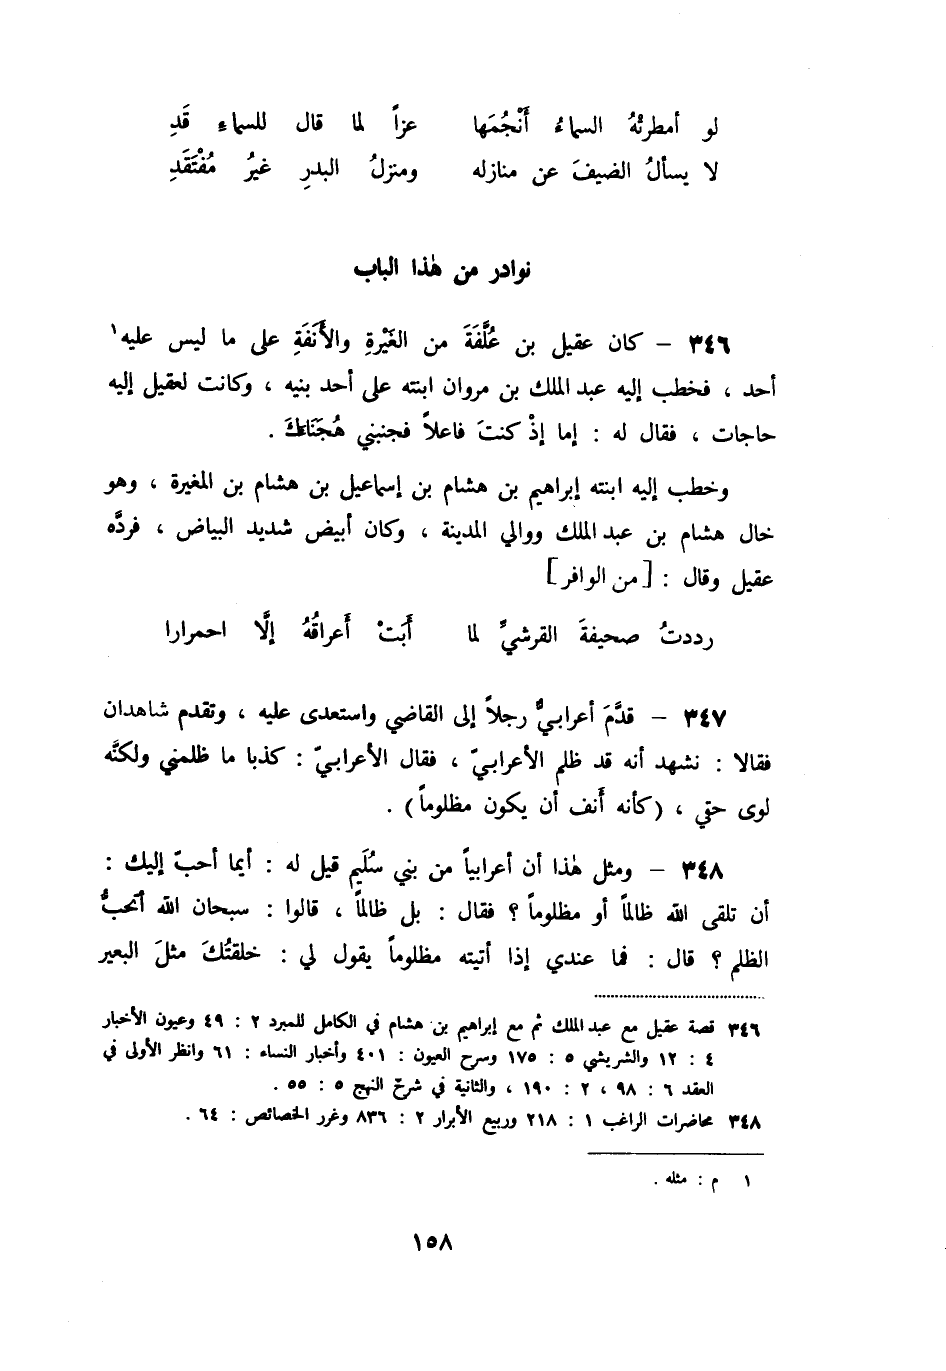 لو أمطرتْهُ السماءُ أَنْجُمَها عزاً لما قال للسماءِ قَدِ
لا يسألُ الضيفَ عن منازله ومنزلُ البدرِ غيرُ مُفْتَقَدِ
نوادر من هٰذا الباب
٣٤٦ – كان عقيل بن عُلَّفَةَ من الغَيْرةِ والأَنَفَةِ على ما ليس عليه١
أحد ، فخطب إليه عبد الملك بن مروان ابنته على أحد بنيه ، وكانت لعقيل إليه
حاجات ، فقال له : إما إذْ كنتَ فاعلاً فجنبني هُجَنَاءَكَ .
وخطب إليه ابنته إبراهيم بن هشام بن إسماعيل بن هشام بن المغيرة ، وهو
خال هشام بن عبد الملك ووالي المدينة ، وكان أبيض شديد البياض ، فردَّه
عقيل وقال : [من الوافر]
رددتُ صحيفةَ القرشيِّ لما أَبَتْ أَعراقُهُ إلَّا احمرارا
٣٤٧ – قدَّمَ أعرابيٌّ رجلاً إلى القاضي واستعدى عليه ، وتقدم شاهدان
فقالا : نشهد أنه قد ظلم الأعرابيّ ، فقال الأعرابيّ : كذبا ما ظلمني ولكنَّه
لوى حقي ، (كأنه أَنف أن يكون مظلوماً) .
٣٤٨ – ومثل هٰذا أن أعرابياً من بني سُلَيم قيل له : أيما أحبّ إليك :
أن تلقى الله ظالماً أو مظلوماً ؟ فقال : بل ظالماً ، قالوا : سبحان الله أتحبُّ
الظلم ؟ قال : فما عندي إذا أتيته مظلوماً يقول لي : خلقتُكَ مثلَ البعير
٣٤٦ قصة عقيل مع عبد الملك ثم مع إبراهيم بن هشام في الكامل للمبرد ٢ : ٤٩ وعيون الأخبار
٤ : ١٢ والشريشي ٥ : ١٧٥ وسرح العيون : ٤٠١ وأخبار النساء : ٦١ وانظر الأولى في
العقد ٦ : ٩٨ ، ٢ : ١٩٠ ، والثانية في شرح النهج ٥ : ٥٥ .
٣٤٨ محاضرات الراغب ١ : ٢١٨ وربيع الأبرار ٢ : ٨٣٦ وغرر الخصائص : ٦٤ .
١ م : مثله .
١٥٨